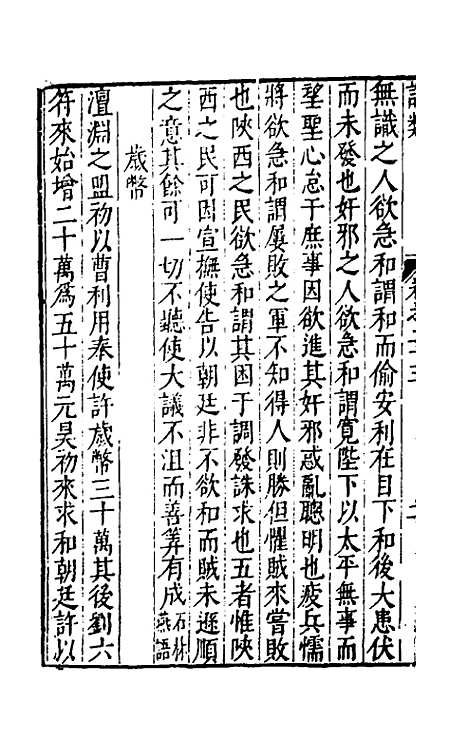 無識之人欲急和謂和而偷安利在目下和後大患伏
而未發也奸邪之人欲急和謂寬陛下以太平無事而
望聖心怠于庶事因欲進其奸邪惑亂聰明也疲兵懦
將欲急和謂屢敗之軍不知得人則勝但懼賊來嘗敗
也陝西之民欲急和謂其困于調發誅求也五者惟陝
西之民可因宣撫使告以朝廷非不欲和而賊未遜順
之意其餘可一切不聽使大議不沮而善筭有成石林燕語
歲幣
澶淵之盟初以曹利用奉使許歲幣三十萬其後劉六
符來始增二十萬爲五十萬元昊初來求和朝廷許以